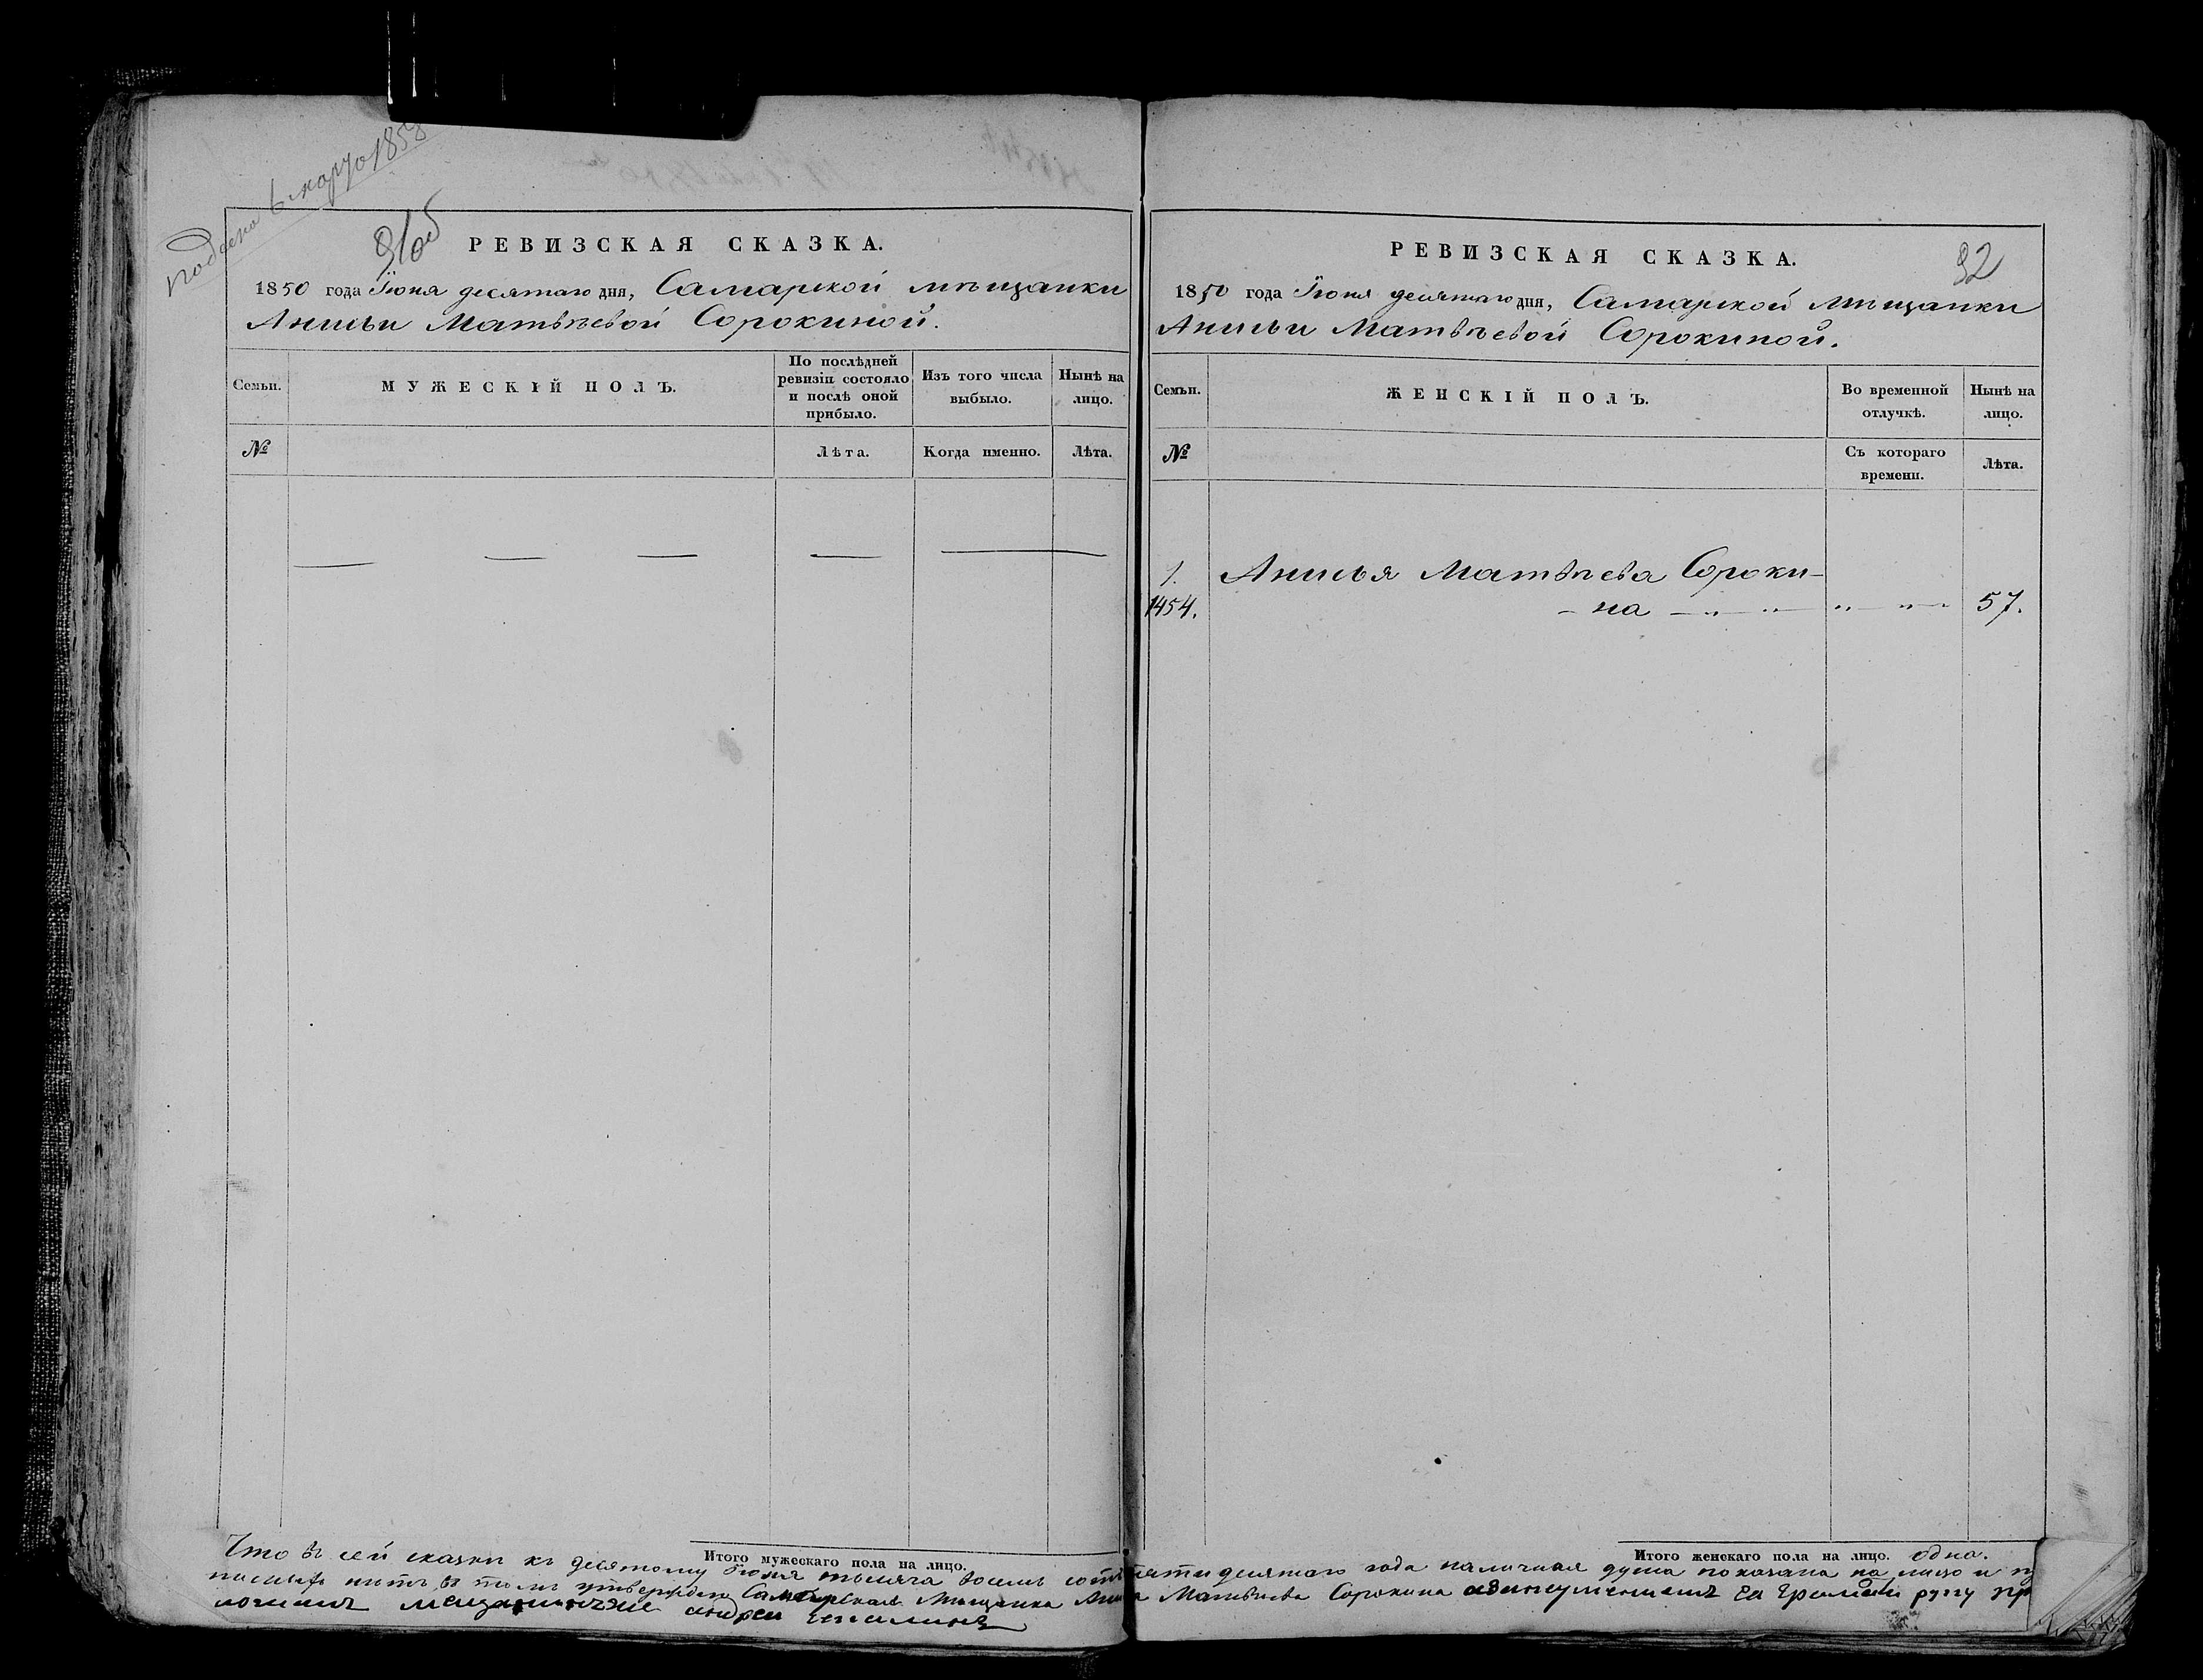 подана 6 марта 1858
91об
РЕВИЗСКАЯ СКАЗКА.
1850 года Іюня десятаго дня, Самарской мѣщанки
Анисьи Матвѣевой Сорокиной.
Семьи.
МУЖЕСКІЙ ПОЛЪ.
По послѣдней ревизіи состояло и послѣ оной прибыло.
Изъ того числа выбыло.
Нынѣ на лицо.
№
Лѣта.
Когда именно.
Лѣта.
Итого мужескаго пола на лицо.
92
РЕВИЗСКАЯ СКАЗКА.
1850 года Іюня десятаго дня, Самарской мѣщанки
Анисьи Матвѣевой Сорокиной.
Семьи.
ЖЕНСКІЙ ПОЛЪ.
Во временной отлучкѣ.
Нынѣ на лицо.
№
Съ котораго времени.
Лѣта.
1. Анисья Матвѣева Сороки-
1454. - на - „ - „ - „ „ - 57.
Итого женскаго пола на лицо. одна.
Что въ сей сказки къ десятому Іюня тысяча восемь сотъ пятидесятаго года наличная душа показана на лицо и
нѣтъ, въ томъ утверждаю Самарская Мѣщанка Матвѣева Сорокина ея руку
андреи